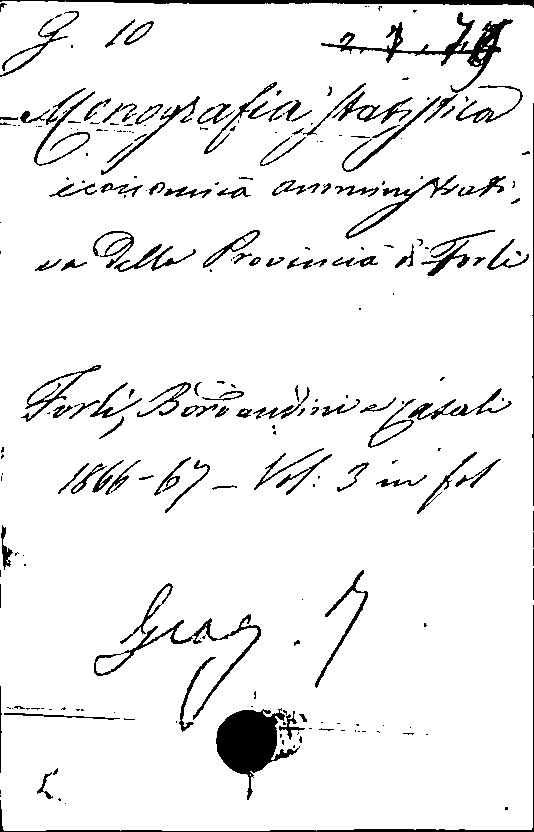 G. 10
2. 7. 7
Monografia statistica
economica amministrati,
va della Provincia di Forlì
Forlì, Bordandini e Casali
1866-67 – Vol: 3 in fol
Geog. 7
L.